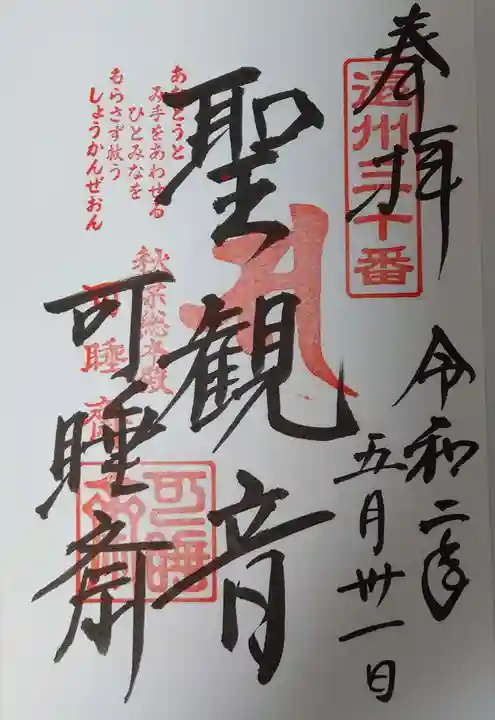 奉拝
遠州三十番
令和二年
五月卅一日
聖観音
あなとうと
み手をあわせる
ひとみなを
もらさず救う
しょうかんぜおん
秋葉総本殿
可睡斎
可睡斎
可睡